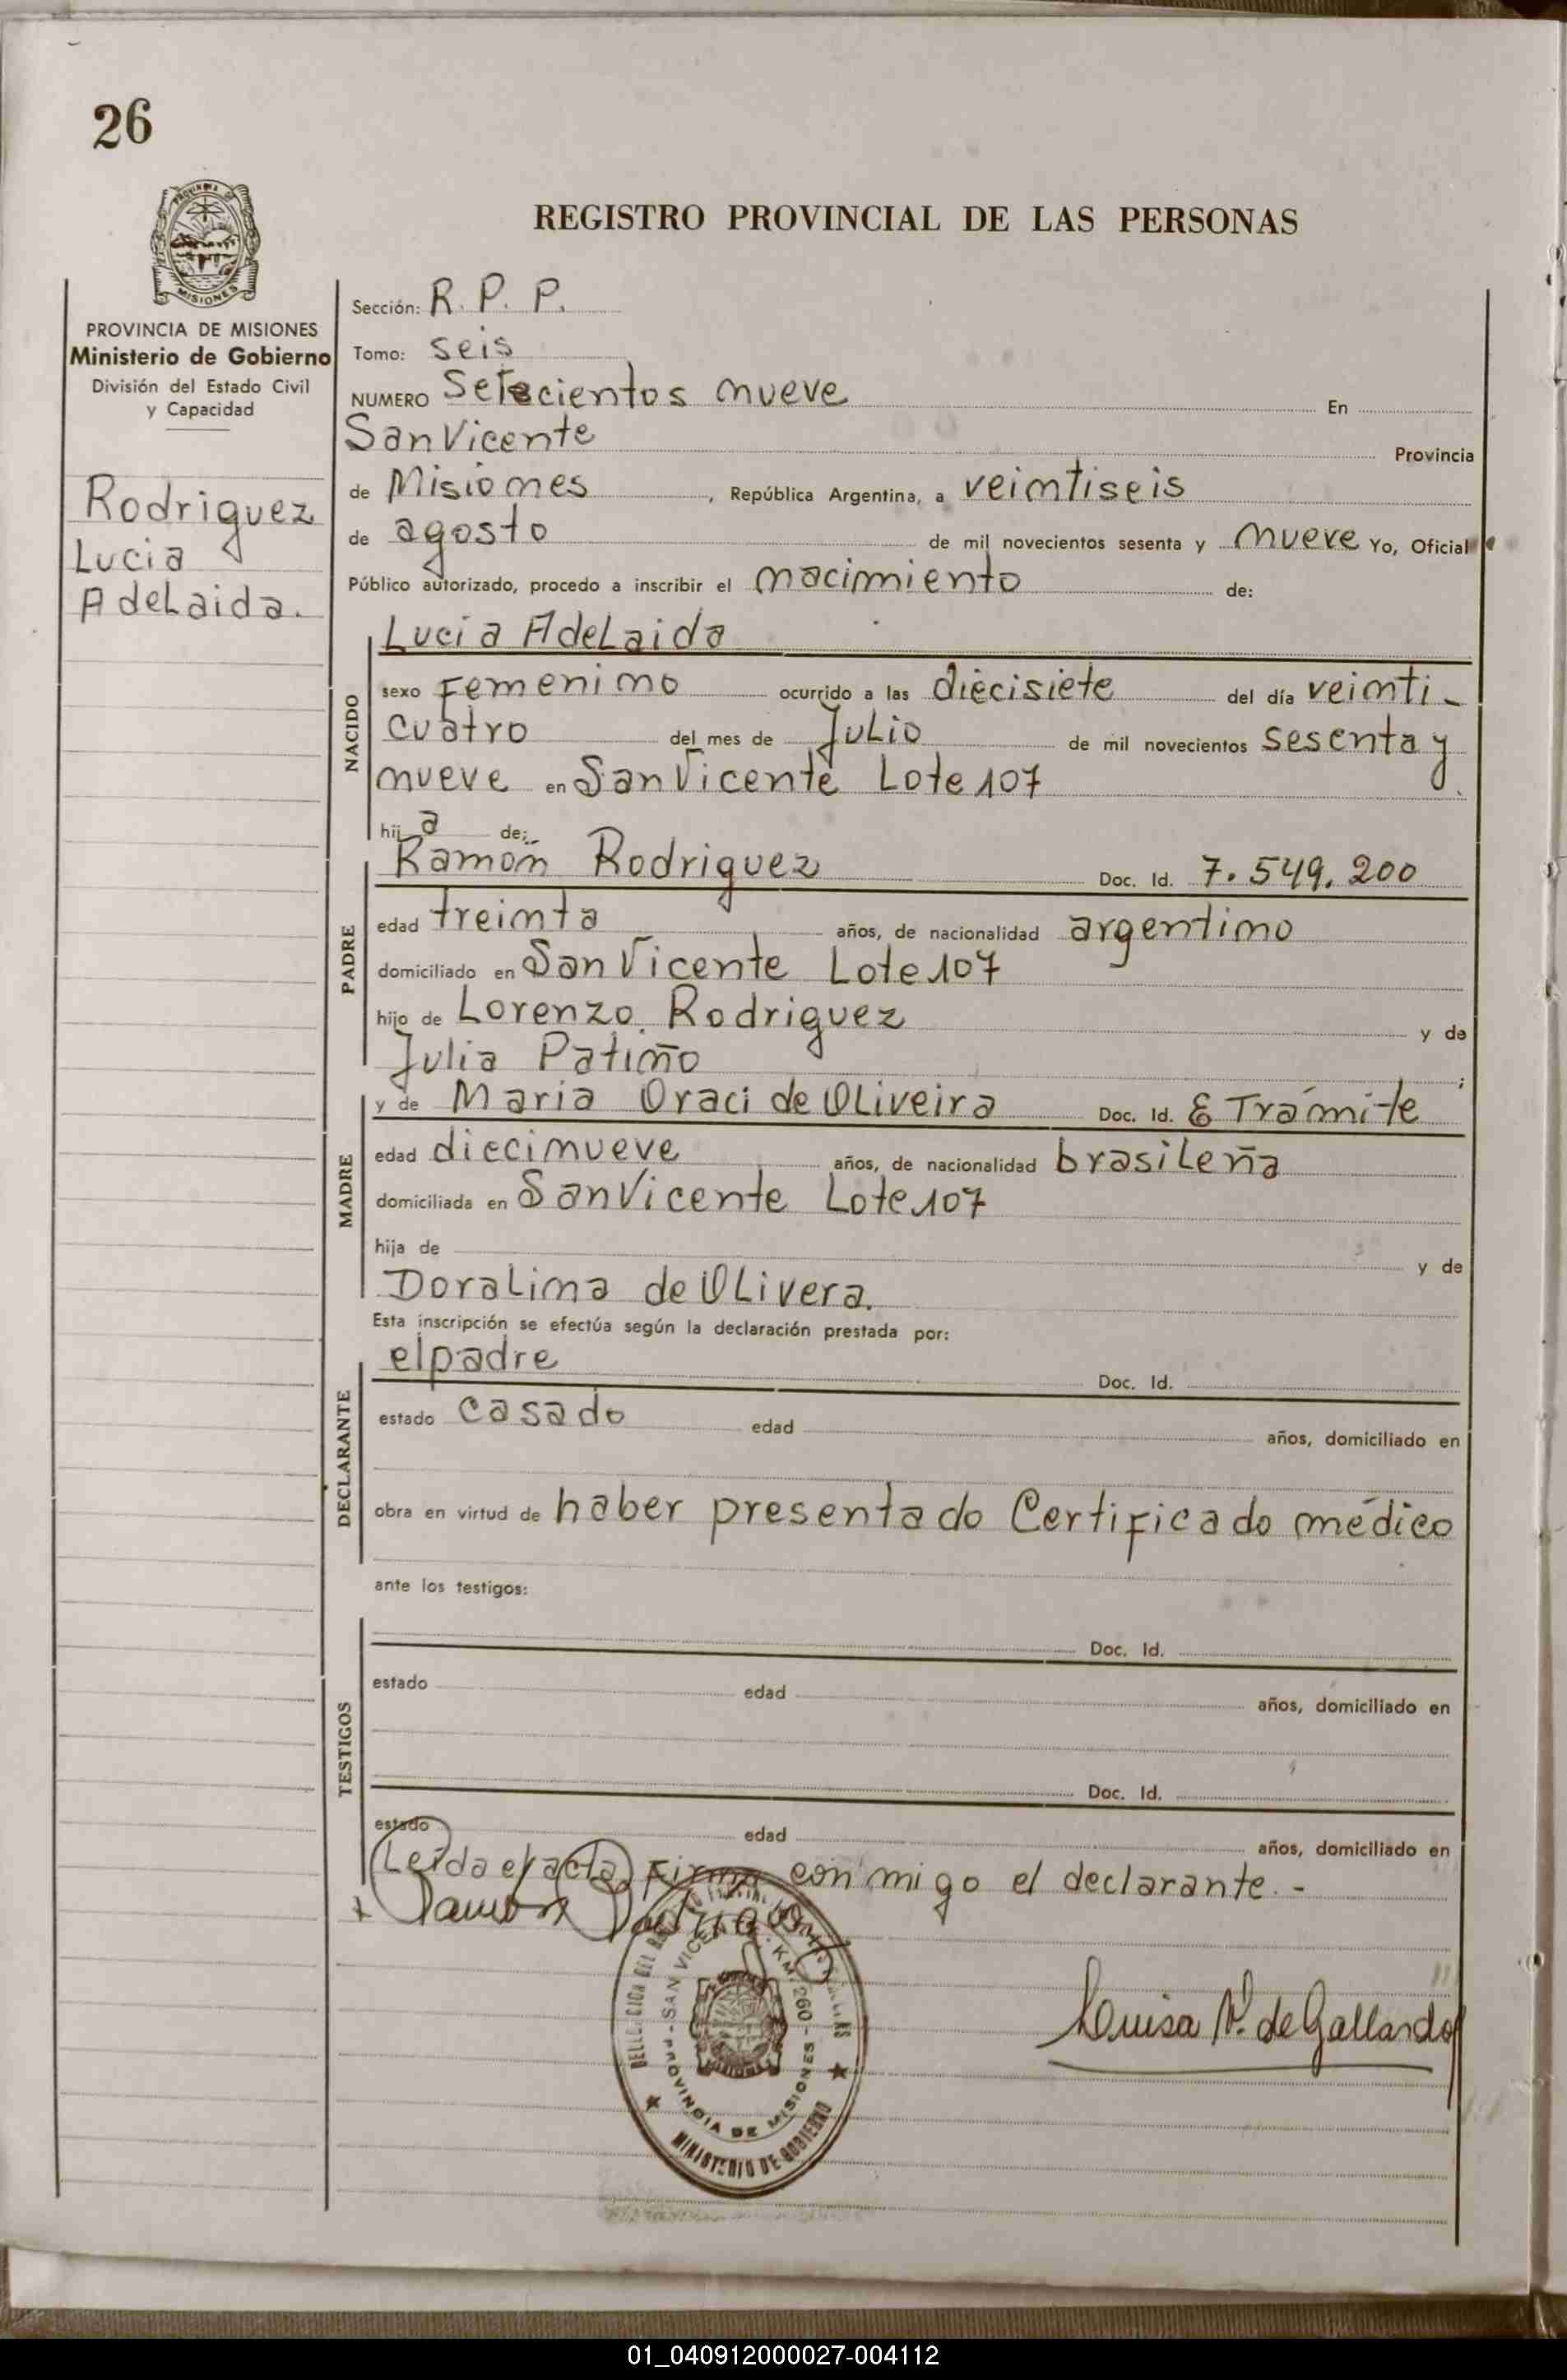 26
PROVINCIA
MISIONES
REGISTRO PROVINCIAL DE LAS PERSONAS
PROVINCIA DE MISIONES
Ministerio de Gobierno
División del Estado Civil
y Capacidad
Rodriguez
Lucia
Adelaida.
Sección: R. P. P.
Tomo: seis
NUMERO Setecientos nueve En
San Vicente Provincia
de Misiones, República Argentina, a veintiseis
de agosto de mil novecientos sesenta y nueve Yo, Oficial
Público autorizado, procedo a inscribir el nacimiento de:
NACIDO
Lucia Adelaida
sexo Femenino ocurrido a las diecisiete del día veinti-
cuatro del mes de Julio de mil novecientos sesenta y
nueve en San Vicente Lote 107
hij a de:
PADRE
Ramón Rodriguez Doc. Id. 7.549.200
edad treinta años, de nacionalidad argentino
domiciliado en San Vicente Lote 107
hijo de Lorenzo Rodriguez y de
Julia Patiño ;
MADRE
y de Maria Oraci de Oliveira Doc. Id. E Trámite
edad diecinueve años, de nacionalidad brasileña
domiciliada en San Vicente Lote 107
hija de y de
Doralina de Olivera.
Esta inscripción se efectúa según la declaración prestada por:
DECLARANTE
el padre Doc. Id.
estado casado edad años, domiciliado en
obra en virtud de haber presentado Certificado médico
ante los testigos:
TESTIGOS
Doc. Id.
estado edad años, domiciliado en
Doc. Id.
estado edad años, domiciliado en
Leida el acta, firma conmigo el declarante.-
Ramon Rodriguez
SAN VICENTE KM. 260 - PROVINCIA DE MISIONES
MINISTERIO DE GOBIERNO
Luisa V. de Gallardo
01_040912000027-004112